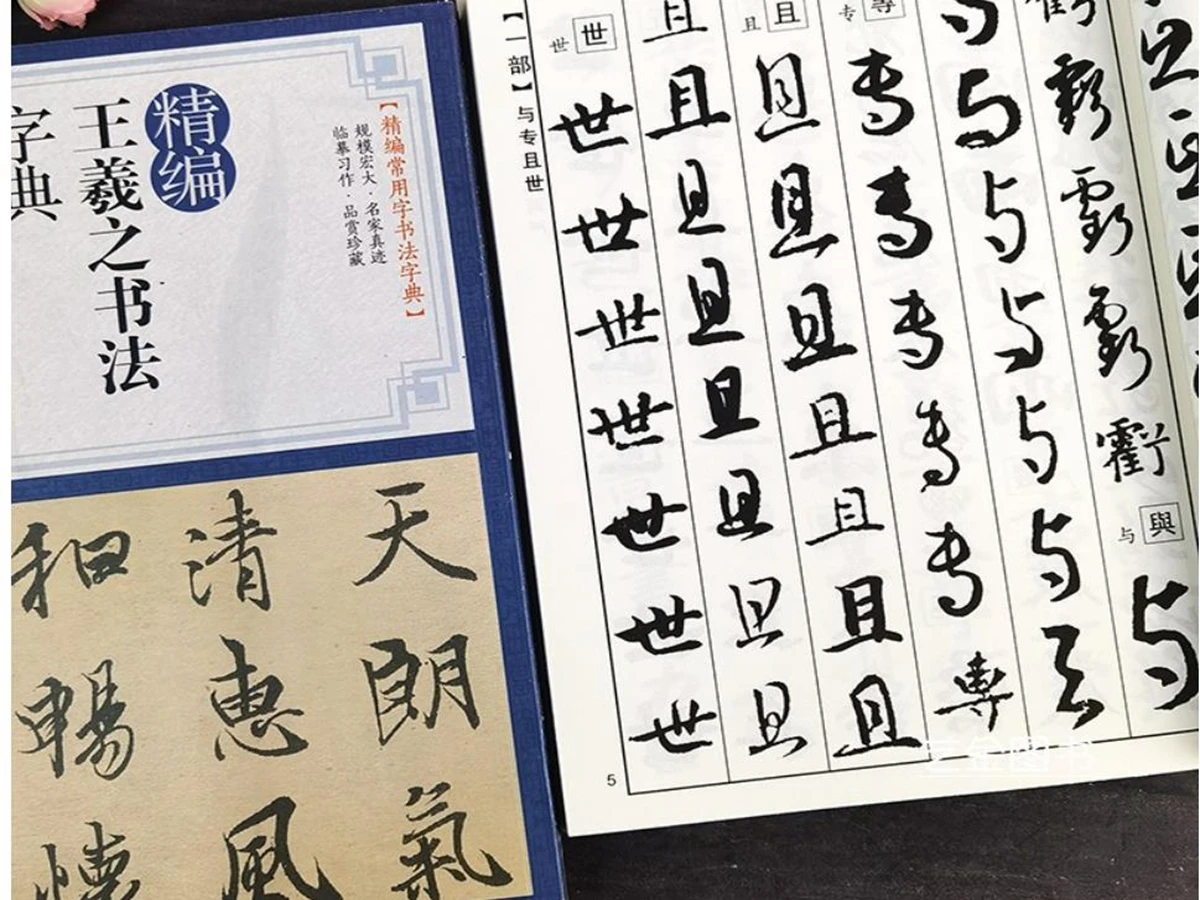 【精编常用字书法字典】
规模宏大·名家真迹
临摹习作·品赏珍藏
精编
王羲之书法
字典
天朗氣
清惠風
和暢懷
虧虧虧虧虧與与与
与与与与与与
專专专专专专专專
且且且且且且且且且
且且且且且且且且
世世世世世世世世世
【一部】与专且世
5
三金图书